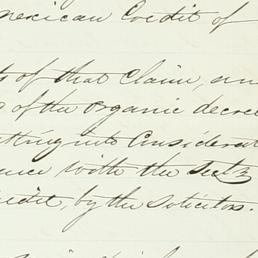 merican Credit of
ts of that Claim, an
s of the organic decre
tting into Considerat
ence with the
edit, by the Solicitor.